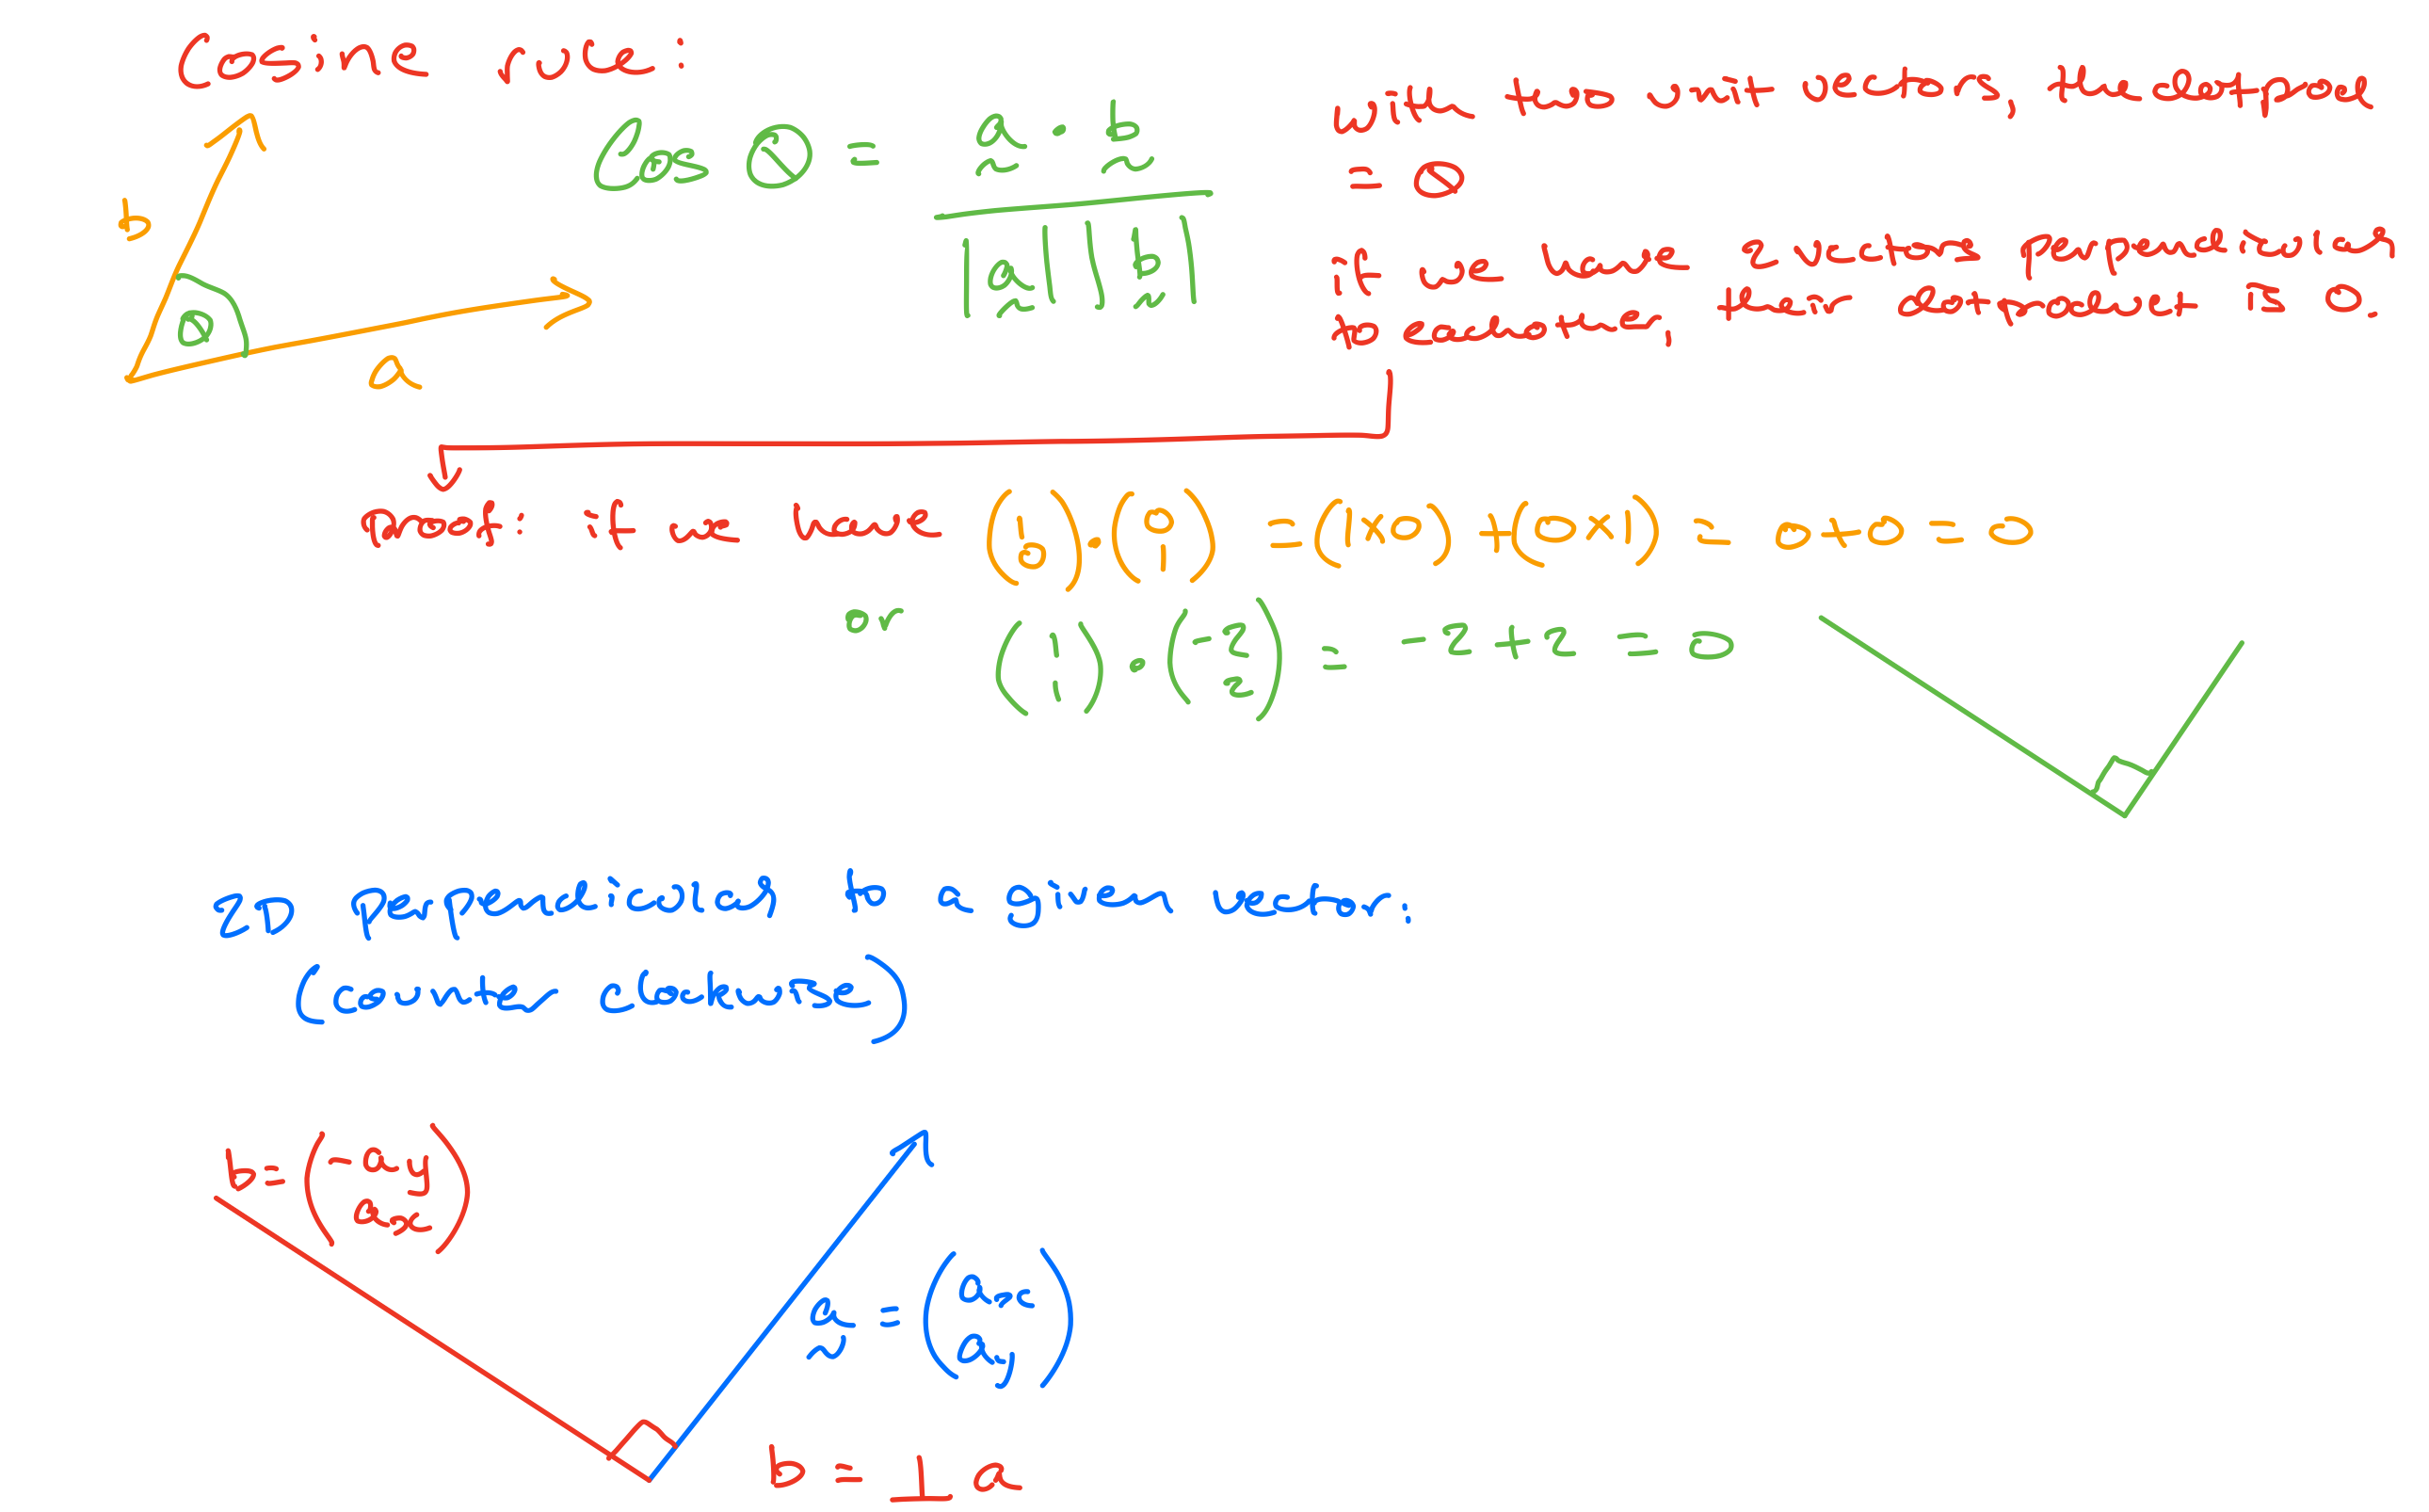 Cosine rule:
b
θ
a
Cos θ = a · b
|a| |b|
with two unit vectors, the dot prod
= θ
if we have 2 vectors perpendicular
to eachother, their dot product is 0.
proof: if we have (1 0) · (0 1) = (1x0) + (0x1) = 0 + 0 = 0
or (1 1) · (-2 2) = -2 + 2 = 0
2D Perpendicular to a given vector:
(counter clockwise)
b = (-ay ax)
a = (ax ay)
b = ⊥ a